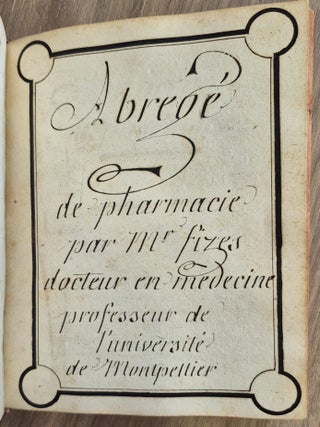 Abregé
de pharmacie
par Mr fizes
docteur en médecine
professeur de
l'université
de Montpellier